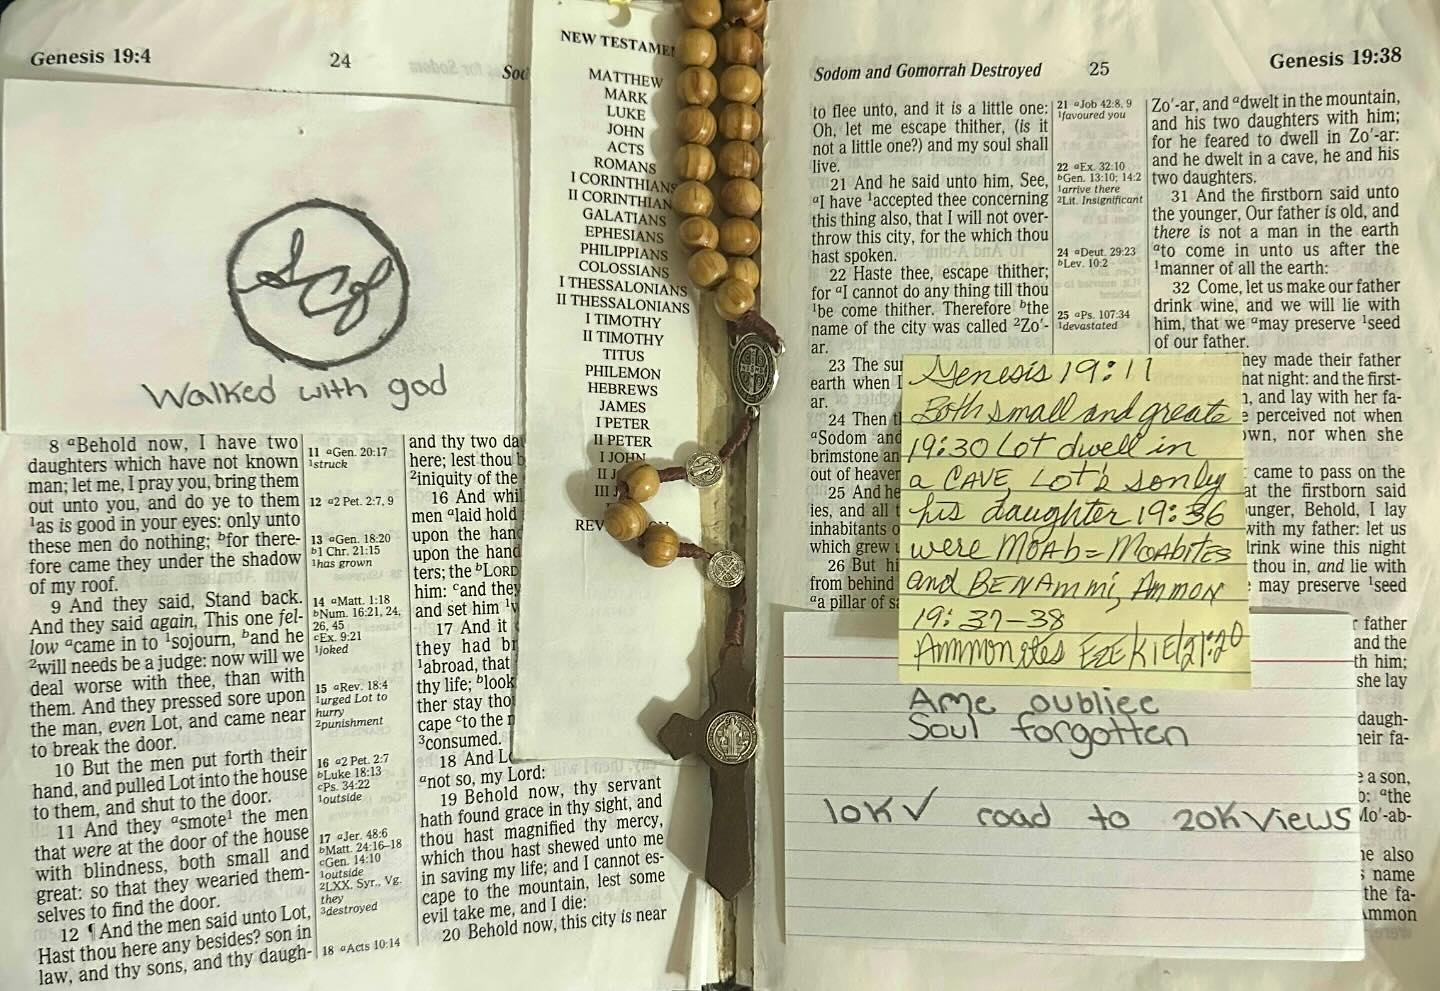 Genesis 19:4
24
Walked with god
8 aBehold now, I have two
daughters which have not known
man; let me, I pray you, bring them
out unto you, and do ye to them
1as is good in your eyes: only unto
these men do nothing; bfor there-
fore came they under the shadow
of my roof.
9 And they said, Stand back.
And they said again, This one fel-
low acame in to 1sojourn, band he
2will needs be a judge: now will we
deal worse with thee, than with
them. And they pressed sore upon
the man, even Lot, and came near
to break the door.
10 But the men put forth their
hand, and pulled Lot into the house
to them, and shut to the door.
11 And they asmote1 the men
that were at the door of the house
with blindness, both small and
great: so that they wearied them-
selves to find the door.
12 ¶ And the men said unto Lot,
Hast thou here any besides? son in
law, and thy sons, and thy daugh-
11 aGen. 20:17
1struck
12 a2 Pet. 2:7, 9
13 aGen. 18:20
b1 Chr. 21:15
1has grown
14 aMatt. 1:18
bNum. 16:21, 24,
26, 45
cEx. 9:21
1joked
15 aRev. 18:4
1urged Lot to
hurry
2punishment
16 a2 Pet. 2:7
bLuke 18:13
cPs. 34:22
1outside
17 aJer. 48:6
bMatt. 24:16–18
cGen. 14:10
1outside
2LXX, Syr., Vg.
they
3destroyed
18 aActs 10:14
and thy two
here; lest thou
2iniquity of the
16 And
men alaid hold
upon the
upon the hand
ters; the bLORD
him: cand they
and set him
17 And it
they had
1abroad, that
thy life; blook
ther stay
cape cto the
3consumed.
18 And
anot so, my Lord:
19 Behold now, thy servant
hath found grace in thy sight, and
thou hast magnified thy mercy,
which thou hast shewed unto me
in saving my life; and I cannot es-
cape to the mountain, lest some
evil take me, and I die:
20 Behold now, this city is near
NEW
MATTHEW
MARK
LUKE
JOHN
ACTS
ROMANS
I CORINTHIANS
II CORINTHIAN
GALATIANS
EPHESIANS
PHILIPPIANS
COLOSSIANS
I THESSALONIANS
II THESSALONIANS
I TIMOTHY
II TIMOTHY
TITUS
PHILEMON
HEBREWS
JAMES
I PETER
II PETER
I JOHN
II
III
REV
Sodom and Gomorrah Destroyed
25
Genesis 19:38
to flee unto, and it is a little one:
Oh, let me escape thither, (is it
not a little one?) and my soul shall
live.
21 And he said unto him, See,
aI have 1accepted thee concerning
this thing also, that I will not over-
throw this city, for the which thou
hast spoken.
22 Haste thee, escape thither;
for aI cannot do any thing till thou
1be come thither. Therefore bthe
name of the city was called 2Zo'-
ar.
23 The
earth when
ar.
24 Then
aSodom and
brimstone
out of heaven
25 And he
ies, and all
inhabitants
which grew
26 But
from behind
aa pillar of
21 aJob 42:8, 9
1favoured you
22 aEx. 32:10
bGen. 13:10; 14:2
1arrive there
2Lit. Insignificant
24 aDeut. 29:23
bLev. 10:2
25 aPs. 107:34
1devastated
Zo'-ar, and adwelt in the mountain,
and his two daughters with him;
for he feared to dwell in Zo'-ar:
and he dwelt in a cave, he and his
two daughters.
31 And the firstborn said unto
the younger, Our father is old, and
there is not a man in the earth
ato come in unto us after the
1manner of all the earth:
32 Come, let us make our father
drink wine, and we will lie with
him, that we amay preserve 1seed
of our father.
hey made their father
hat night: and the first-
n, and lay with her fa-
e perceived not when
own, nor when she
came to pass on the
at the firstborn said
unger, Behold, I lay
with my father: let us
drink wine this night
thou in, and lie with
may preserve 1seed
r father
and the
th him;
she lay
daugh-
heir fa-
e a son,
athe
Mo'-ab-
he also
name
the fa-
Ammon
Genesis 19:11
Both small and greate
19:30 Lot dwell in
a CAVE, Lot's son by
his daughter 19:36
were MOAb = MOABITES
and BENAmmi, Ammon
19:37-38
Ammonites EZEKIEl 21:20
Ame oubliee
Soul forgotten
10K✓ road to 20K views